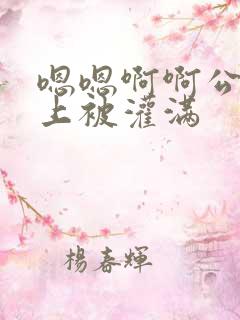 嗯嗯啊啊公
上被灌满
楊春輝